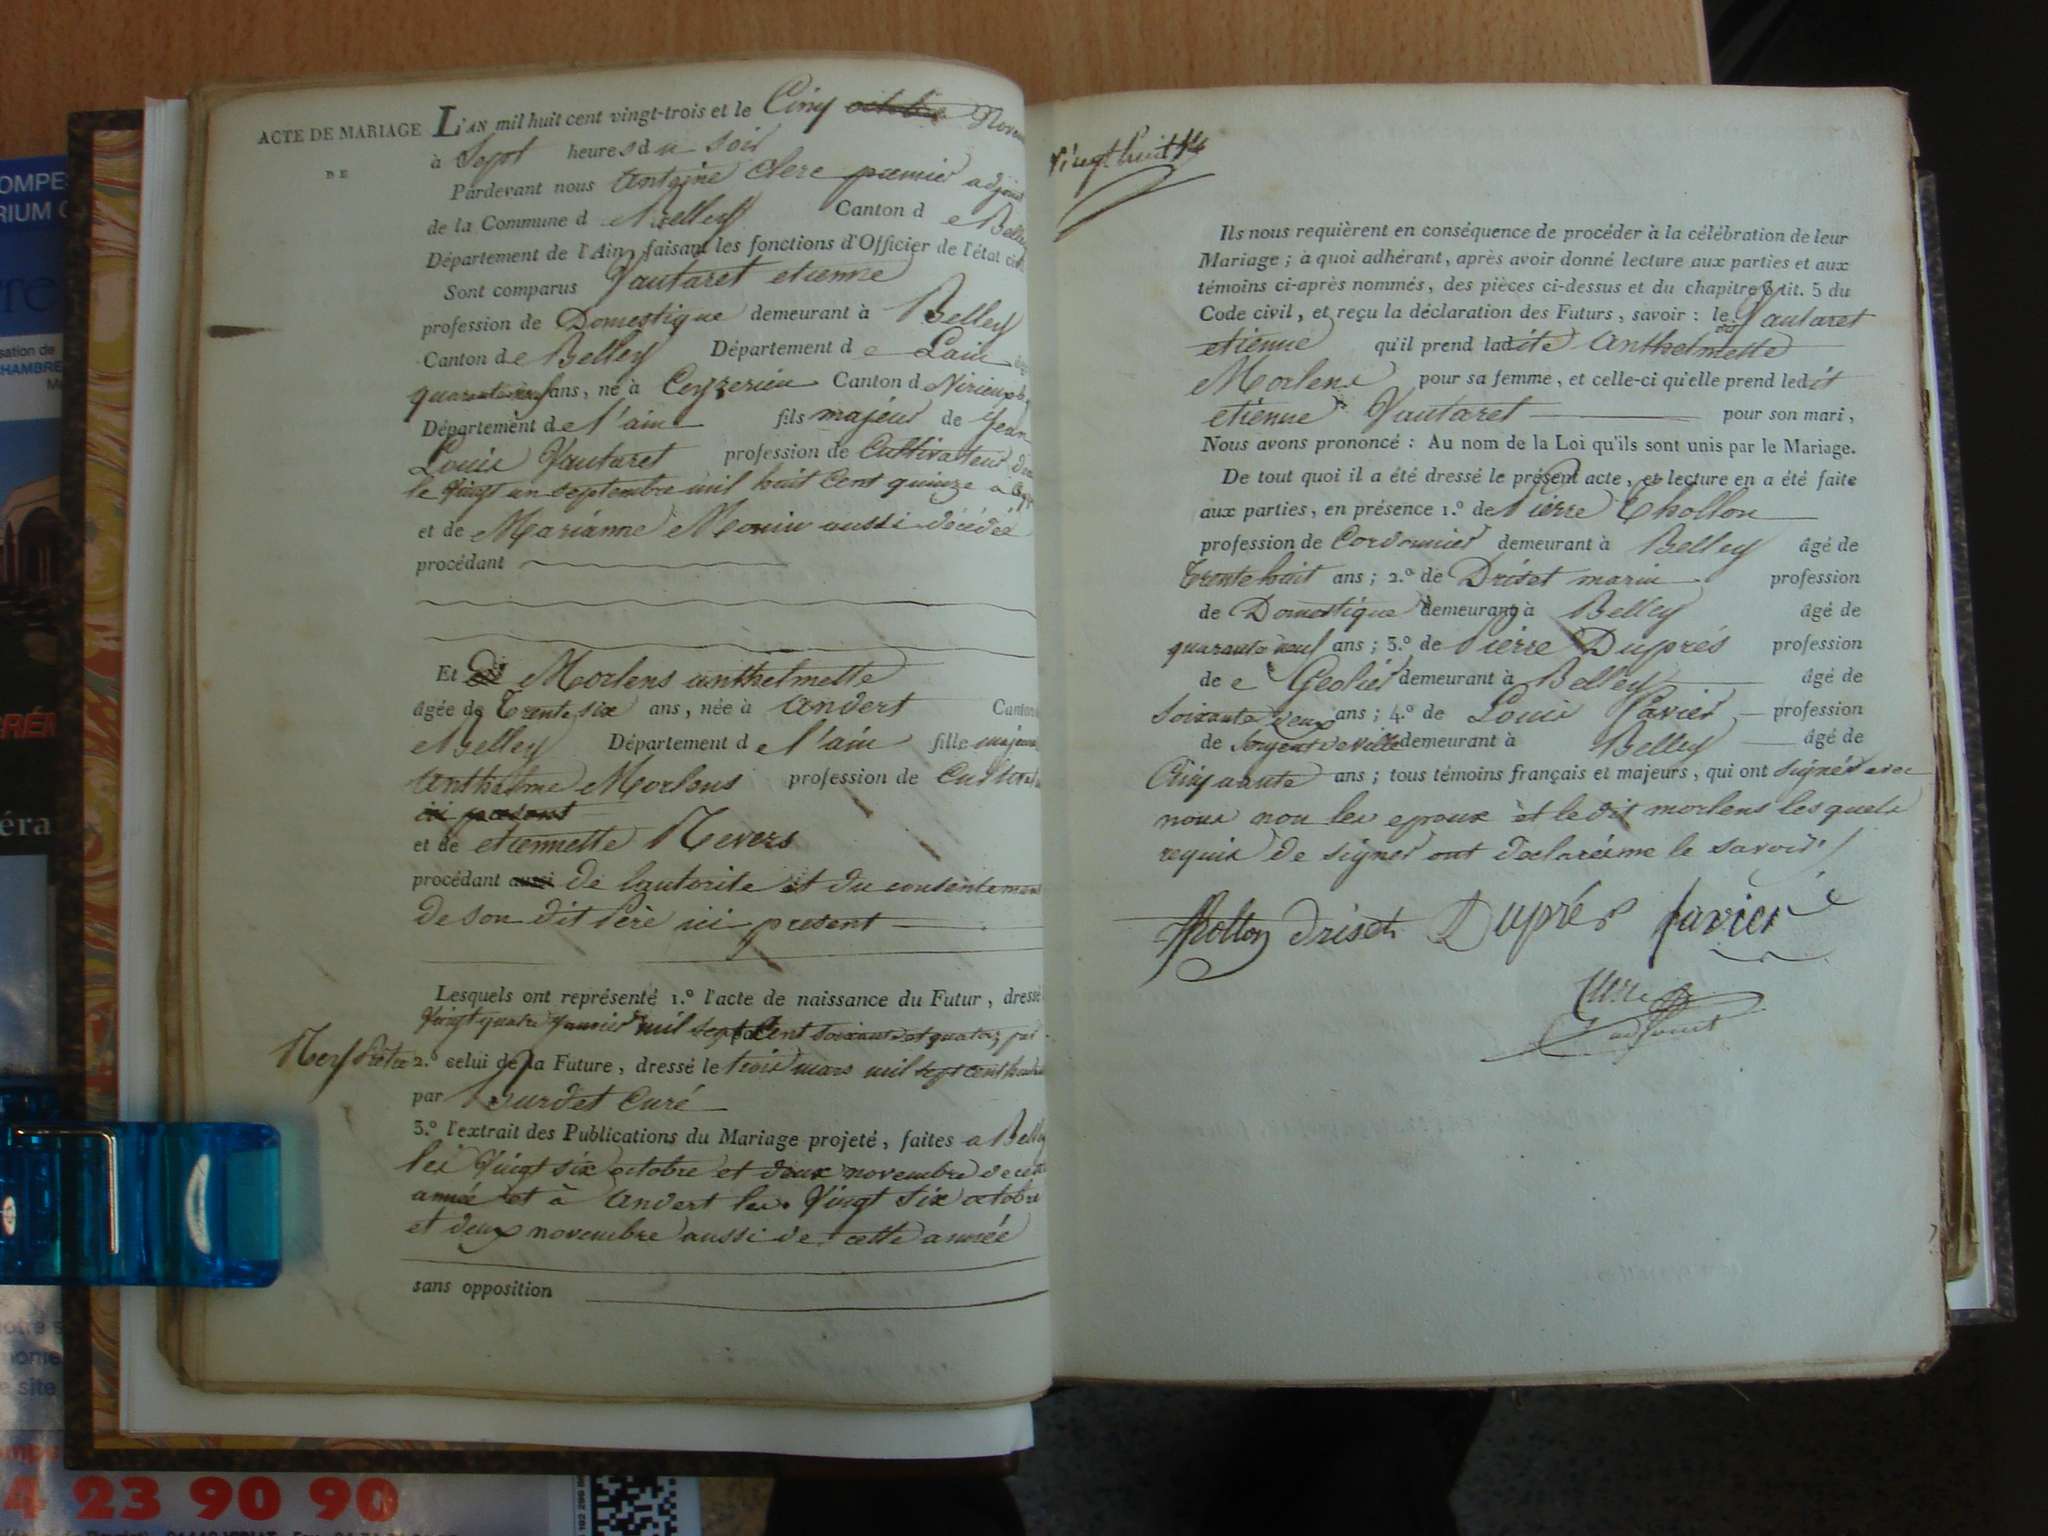 ACTE DE MARIAGE
DE
L'AN mil huit cent vingt-trois et le Cinq octobre Novem
à Sept heures du soir
Pardevant nous Antoine Clerc premier adjoint
de la Commune de Belley Canton de Belley
Département de l'Ain, faisant les fonctions d'Officier de l'état civil
Sont comparus Vautaret etienne
profession de Domestique demeurant à Belley
Canton de Belley Département de Lain
quarante neuf ans, né à Ceyzerieu Canton d Virieu
Département de l'ain fils majeur de Jean
Louis Vautaret profession de Cultivateur
le Vingt un septembre mil huit Cent quinze a
et de Marianne Monin aussi décédée
procédant
Et Morlens anthelmette
âgée de Trente six ans, née à Andert Canton
Belley Département de l'ain fille majeure
Anthelme Morlens profession de Cultivat
ici present
et de etiennette Nevers
procédant aussi de lautorité et du consentement
de son dit Père ici present
Lesquels ont représenté 1.º l'acte de naissance du Futur, dressé
Vingt quatre Janvier mil sept Cent soixante et quatorz par
Neyf Prêtre 2.º celui de la Future, dressé le trois mars mil sept cent
par Burdet Curé
3.º l'extrait des Publications du Mariage projeté, faites a Belley
les Vingt six octobre et deux novembre de cette
année et à Andert les Vingt Six octobre
et deux novembre aussi de cette année
sans opposition
Vingt huit
Ils nous requièrent en conséquence de procéder à la célébration de leur
Mariage; à quoi adhérant, après avoir donné lecture aux parties et aux
témoins ci-après nommés, des pièces ci-dessus et du chapitre 3 tit. 5 du
Code civil, et reçu la déclaration des Futurs, savoir: le dit Vautaret
etienne qu'il prend ladite Anthelmette
Morlens pour sa femme, et celle-ci qu'elle prend ledit
etienne Vautaret pour son mari,
Nous avons prononcé: Au nom de la Loi qu'ils sont unis par le Mariage.
De tout quoi il a été dressé le présent acte, et lecture en a été faite
aux parties, en présence 1.º de Pierre Thollon
profession de Cordonnier demeurant à Belley âgé de
Trente huit ans; 2.º de Driset marin profession
de Domestique demeurant à Belley âgé de
quarante neuf ans; 3.º de Pierre Duprés profession
de e Geolier demeurant à Belley âgé de
Soixante deux ans; 4.º de Louis Cavier profession
de Sergent de Ville demeurant à Belley âgé de
Cinquante ans; tous témoins français et majeurs, qui ont signés avec
nous non les epoux et ledit morlens lesquels
requis de signer ont déclaré ne le savoir
Thollon Driset Duprés Cavier
Clerc
adjoint
4 23 90 90